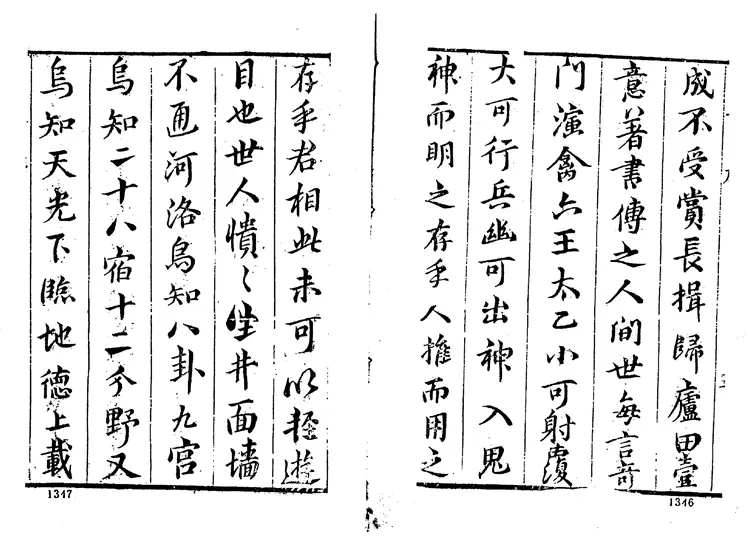 成不受賞長揖歸廬田壹
意著書傳之人間世每言奇
門演禽六壬太乙小可射覆
大可行兵幽可出神入鬼
神而明之存乎人推而用之
1346
存乎君相此未可以輕遊
目也世人憒〻坐井面墙
不通河洛烏知八卦九宮
烏知二十八宿十二分野又
烏知天光下臨地德上載
1347